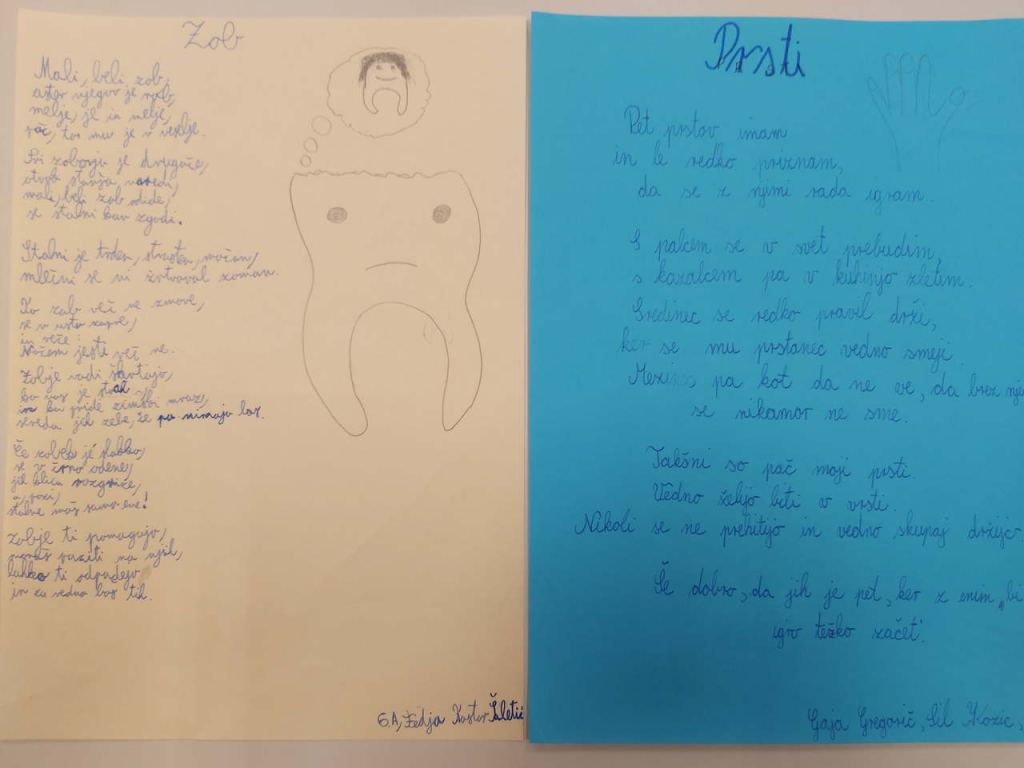 Zob
Mali, beli zob,
njegov je rob,
melje, je in melje,
pač, to mu je v veselje.
Pri zobovju je drugače,
naredi,
mali, beli zob odide,
se stalni kar zgodi.
Stalni je trden, močan,
mlečni se ni žrtvoval zaman.
Ko zob več ne zmore,
se v usta zapre,
in reče:
Nočem jesti več ne.
Zobje radi škrtajo,
ko nas je strah,
in ko pride zimski mraz,
seveda jih zebe, že pa nimajo las.
Če zobek je
se v črno odene,
pazi,
stalne maš samo ene!
Zobje ti pomagajo,
moraš paziti na njih,
lahko ti odpadejo
in za vedno boš tih.
6.A, Kostar Šletić
Prsti
Pet prstov imam
in le redko priznam,
da se z njimi rada igram.
S palcem se v svet prebudim,
s kazalcem pa v kuhinjo zletim.
Sredinec se redko pravil drži,
ker se mu prstanec vedno smeji.
Mezinec pa kot da ne ve, da brez nje
se nikamor ne sme.
Takšni so pač moji prsti.
Vedno želijo biti v vrsti.
Nikoli se ne prehitijo in vedno skupaj držijo
Še dobro, da jih je pet, ker z enim „bi
igro težko začet'.
Gaja Gregorič, Lil Kozic,